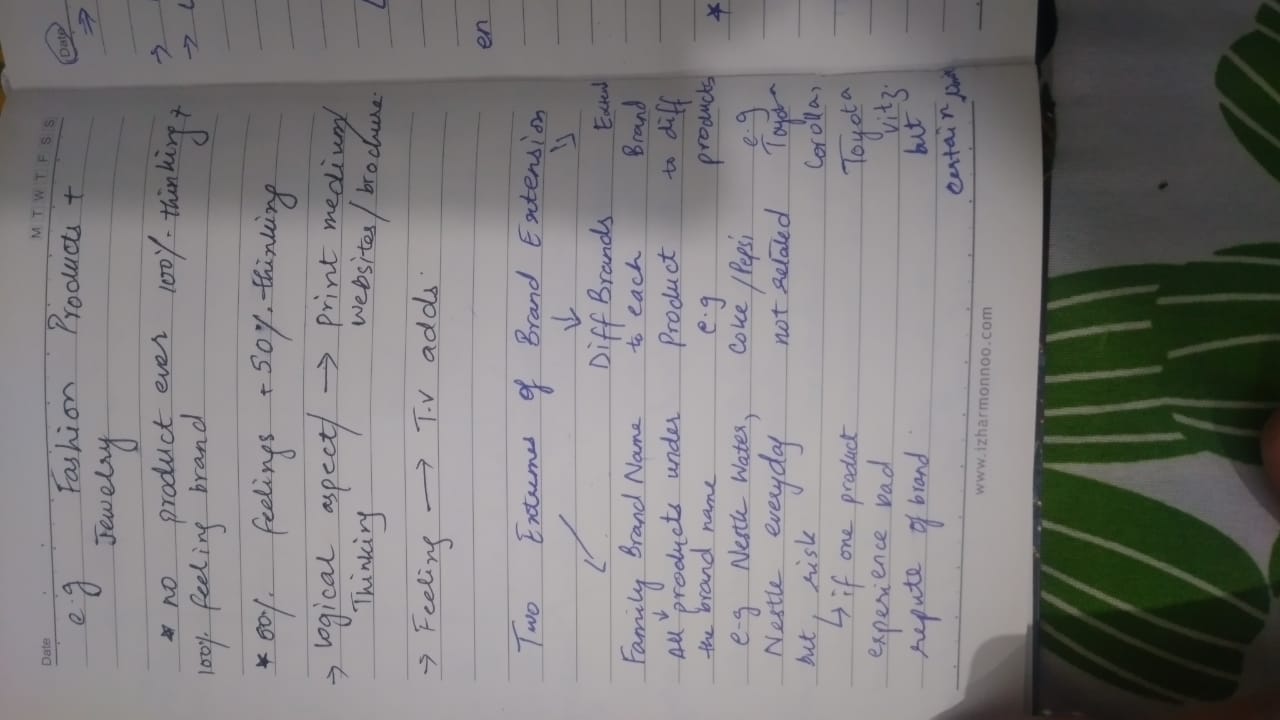 Date
M T W T F S S
e.g Fashion Products +
Jewelry
* no product ever 100%. thinking +
100% feeling brand
* 50%. feelings + 50%. thinking
→ logical aspect/ → print medium/
Thinking websites/brochure.
→ Feeling → T.V adds.
Two Extremes of Brand Extension
Family Brand Name
All products under
the brand name
e-g Nestle Water,
Nestle everyday
but, risk
↳ if one product
experience bad
repute of brand
Diff Brands
to each
Product
e.g
Coke /Pepsi
not related
Extend
Brand
to diff
products
e.g
Toyota
Corolla,
Toyota
vitz.
but
certain
www.izharmonnoo.com
Date
en